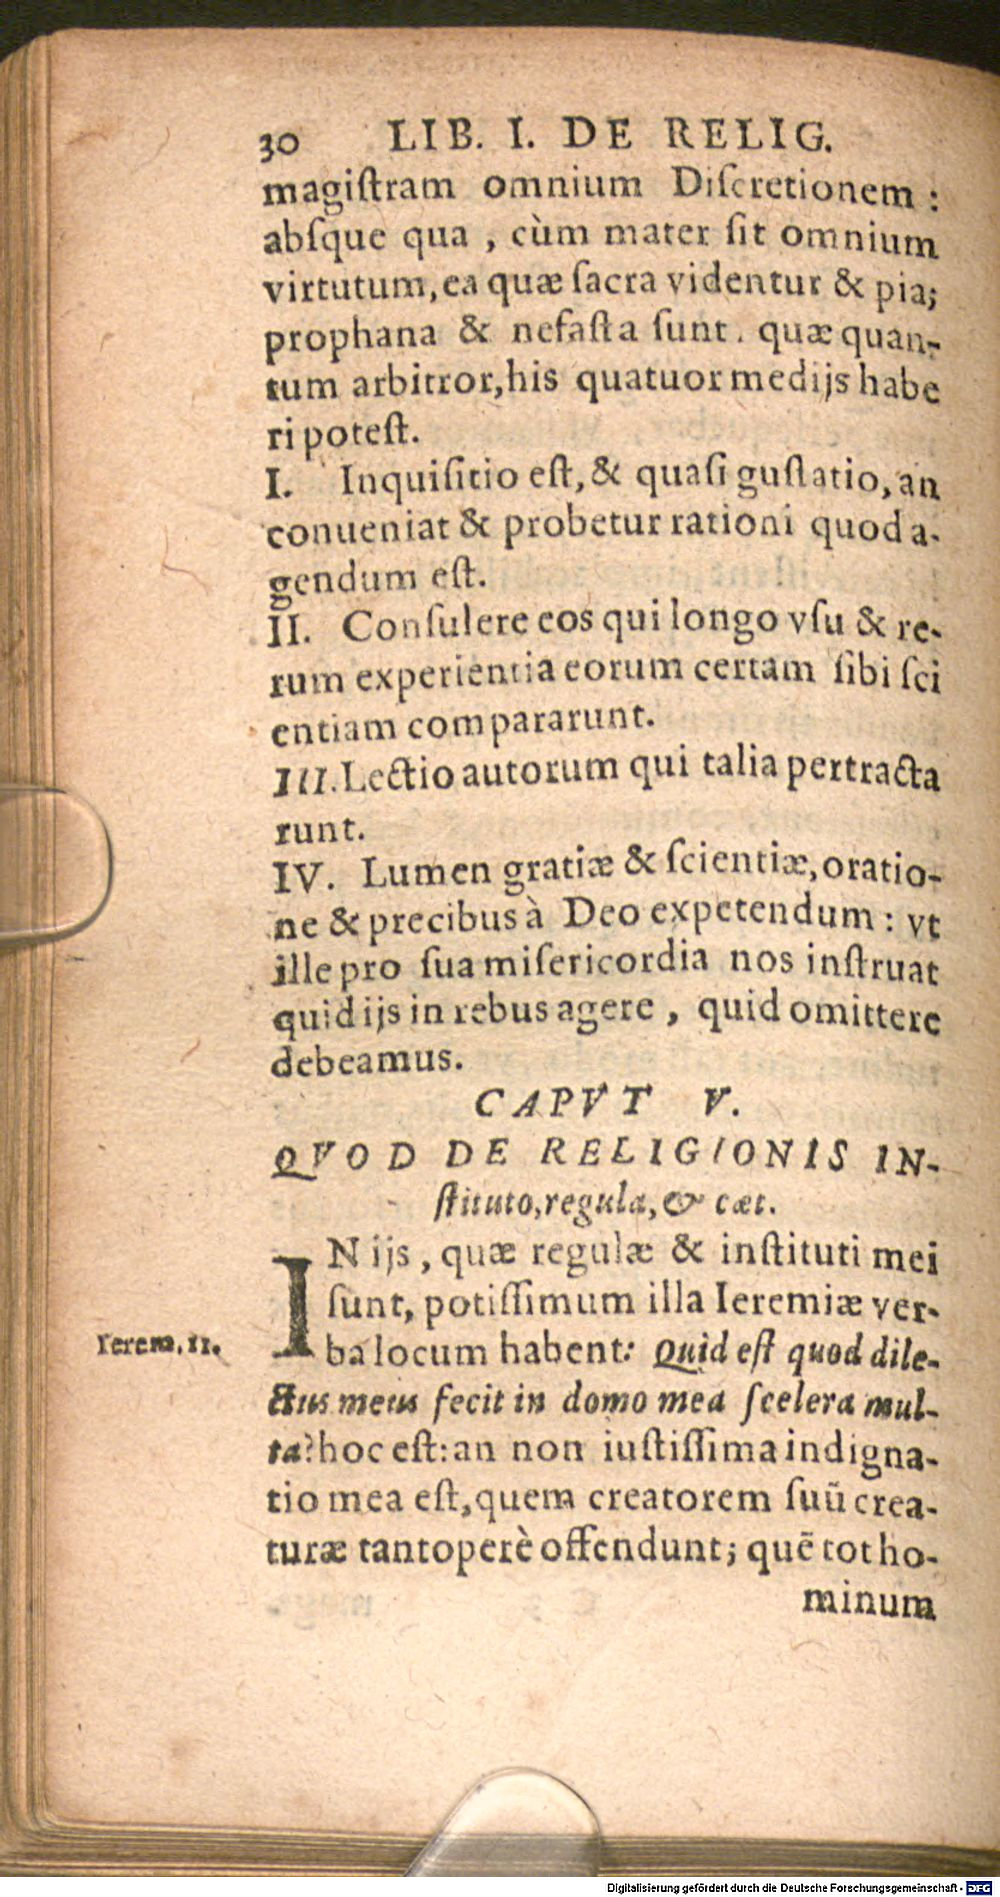 30 LIB. I. DE RELIG.
magiſtram omnium Diſcretionem :
abſque qua , cùm mater ſit omnium
virtutum, ea quæ ſacra videntur & pia;
prophana & nefaſta ſunt. quæ quan-
tum arbitror, his quatuor medijs habe
ri poteſt.
I. Inquiſitio eſt, & quaſi guſtatio, an
conueniat & probetur rationi quod a-
gendum eſt.
II. Conſulere eos qui longo vſu & re-
rum experientia eorum certam ſibi ſci
entiam compararunt.
III. Lectio autorum qui talia pertracta
runt.
IV. Lumen gratiæ & ſcientiæ, oratio-
ne & precibus à Deo expetendum : vt
ille pro ſua miſericordia nos inſtruat
quid ijs in rebus agere , quid omittere
debeamus.
CAPVT V.
QVOD DE RELIGIONIS IN-
ſtituto, regula, & cæt.
IN ijs , quæ regulæ & inſtituti mei
ſunt, potiſſimum illa Ieremiæ ver-
Ierem. 11. ba locum habent: Quid eſt quod dile-
ctus meus fecit in domo mea ſcelera mul-
ta? hoc eſt: an non iuſtiſſima indigna-
tio mea eſt, quem creatorem ſuũ crea-
turæ tantoperè offendunt; quẽ tot ho-
minum
Digitalisierung gefördert durch die Deutsche Forschungsgemeinschaft - DFG